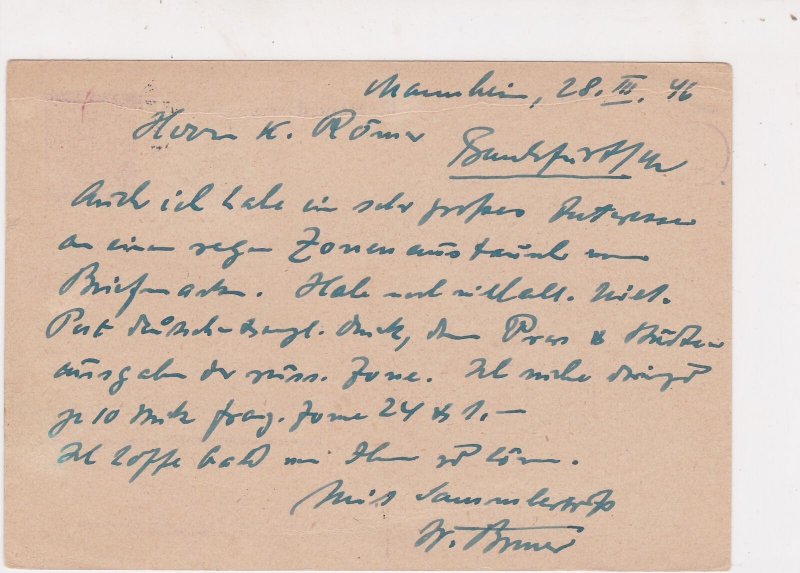 Mannheim, 28. III. 46
Herrn K. Römer
Frankfurt/M
Auch ich habe ein sehr großes Interesse
an einem regen Zonenaustausch von
Briefmarken. Habe noch
Post deutscher & engl. Druck, dann Prov &
ausgaben der russ. Zone. Ich suche dringd
je 10 Stück franz. Zone 24 & 1.–
Ich hoffe bald von Ihnen zu hören.
Mit Sammlergruß